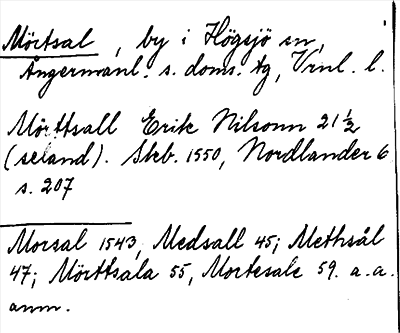 Mörtsal, by i Högsjö sn,
Ångermanl. s. doms. tg, Vrnl. l.
Mörttsall Erik Nilsonn 21 1/2
(seland). Skb. 1550, Nordlander 6
s. 207
Morsal 1543, Medsall 45; Methsål
47; Mörttsala 55, Mortesale 59. a.a.
anm.